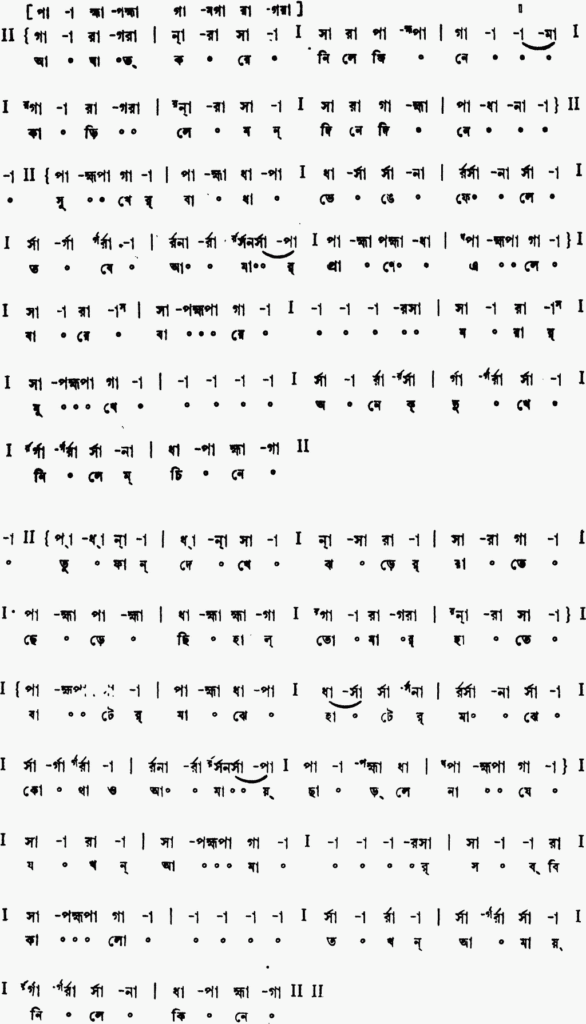 [ পা -া হ্মা -পহ্মা গা -মগা রা -গরা ]
II { গা -া রা -গরা | ন্‌া -রা সা -া I সা রা পা -হ্মপা | গা -া -া -মা I
আ ০ ঘা ০ত্‌ ক ০ রে ০ নি লে জি ০ নে ০ ০ ০
I রগা -া রা -গরা | রন্‌া -রা সা -া I সা রা গা -হ্মা | পা -ধা -না -া } II
কা ০ ড়ি ০০ লে ০ ম ন্‌ দি নে দি ০ নে ০ ০ ০
-া II { পা -হ্মপা গা -া | পা -হ্মা ধা -পা I ধা -র্সা র্সা -না | র্রর্সা -না র্সা -া I
০ সু ০০ খে র্‌ বা ০ ধা ০ ভে ০ ঙে ০ ফে০ ০ লে ০
I র্সা -র্গা র্গর্রা -া | র্রনা -র্রা র্রর্সনর্সা -পা I পা -হ্মা পহ্মা -ধা | ধপা -হ্মপা গা -া } I
ত ০ বে ০ আ০ ০ মা০০ র্‌ প্রা ০ ণে০ ০ এ ০০ লে ০
I সা -া রা -াস | সা -পহ্মপা গা -া I -া -া -া -রসা | সা -া রা -াস I
বা ০ রে ০ বা ০০০ রে ০ ০ ০ ০ ০০ ম ০ রা র্‌
I সা -পহ্মপা গা -া | -া -া -া -া I র্সা -া র্রা -র্রর্সা | র্গা -র্গর্রা র্সা -া I
মু ০০০ খে ০ ০ ০ ০ ০ অ ০ নে ক্‌ দু ০ খে ০
I র্রর্গা -র্গর্রা র্সা -না | ধা -পা হ্মা -গা II
নি ০ লে ম্‌ চি ০ নে ০
-া II { প্‌া -ধ্‌া ন্‌া -া | ধ্‌া -ন্‌া সা -া I ন্‌া -সা রা -া | সা -রা গা -া I
০ তু ০ ফা ন্‌ দে ০ খে ০ ঝ ০ ড়ে র্‌ রা ০ তে ০
I পা -হ্মা পা -হ্মা | ধা -হ্মা হ্মা -গা I রগা -া রা -গরা | রন্‌া -রা সা -া } I
ছে ০ ড়ে ০ ছি ০ হা ল্‌ তো ০ মা ০র্‌ হা ০ তে ০
I { পা -হ্মপা -া | পা -হ্মা ধা -পা I ধা -র্সা র্সা র্সনা | র্রর্সা -না র্সা -া I
বা ০০ টে র্‌ মা ০ ঝে ০ হা ০ টে র্‌ মা০ ০ ঝে ০
I র্সা -র্গা র্গর্রা -া | র্রনা -র্রা র্রর্সনর্সা -পা I পা -া -পহ্মা ধা | ধপা -হ্মপা গা -া } I
কো ০ থা ও আ০ ০ মা০০ য়্‌ ছা ০ ড়্‌ লে না ০০ যে ০
I সা -া রা -া | সা -পহ্মপা গা -া I -া -া -া -রসা | সা -া -া রা I
য ০ খ ন্‌ আ ০০০ মা ০ ০ ০ ০ ০র্‌ স ০ ব্‌ বি
I সা -পহ্মপা গা -া | -া -া -া -া I র্সা -া র্রা -া | র্সা -র্গর্রা র্সা -া I
কা ০০০ লো ০ ০ ০ ০ ০ ত ০ খ ন্‌ আ ০ মা য়্‌
I র্রর্গা -র্গর্রা র্সা -না | ধা -পা হ্মা -গা II II
নি ০ লে ০ কি ০ নে ০